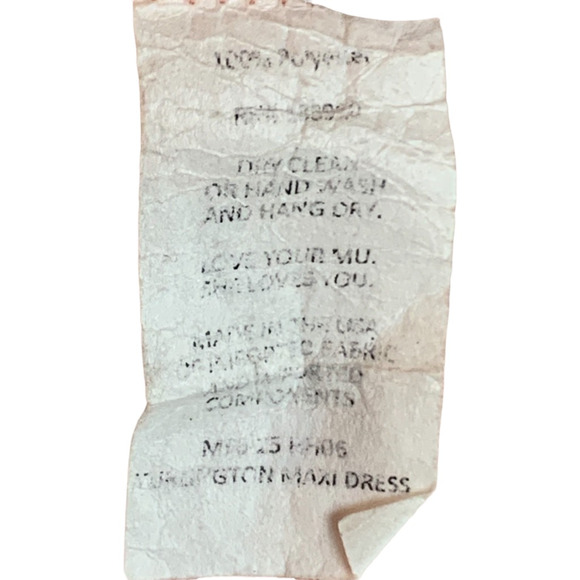 100% Polyester
DRY CLEAN
OR HAND WASH
AND HANG DRY.
LOVE YOUR MU.
SHE LOVES YOU.
MADE IN THE USA
OF IMPORTED FABRIC
AND IMPORTED
COMPONENTS
MAXI DRESS